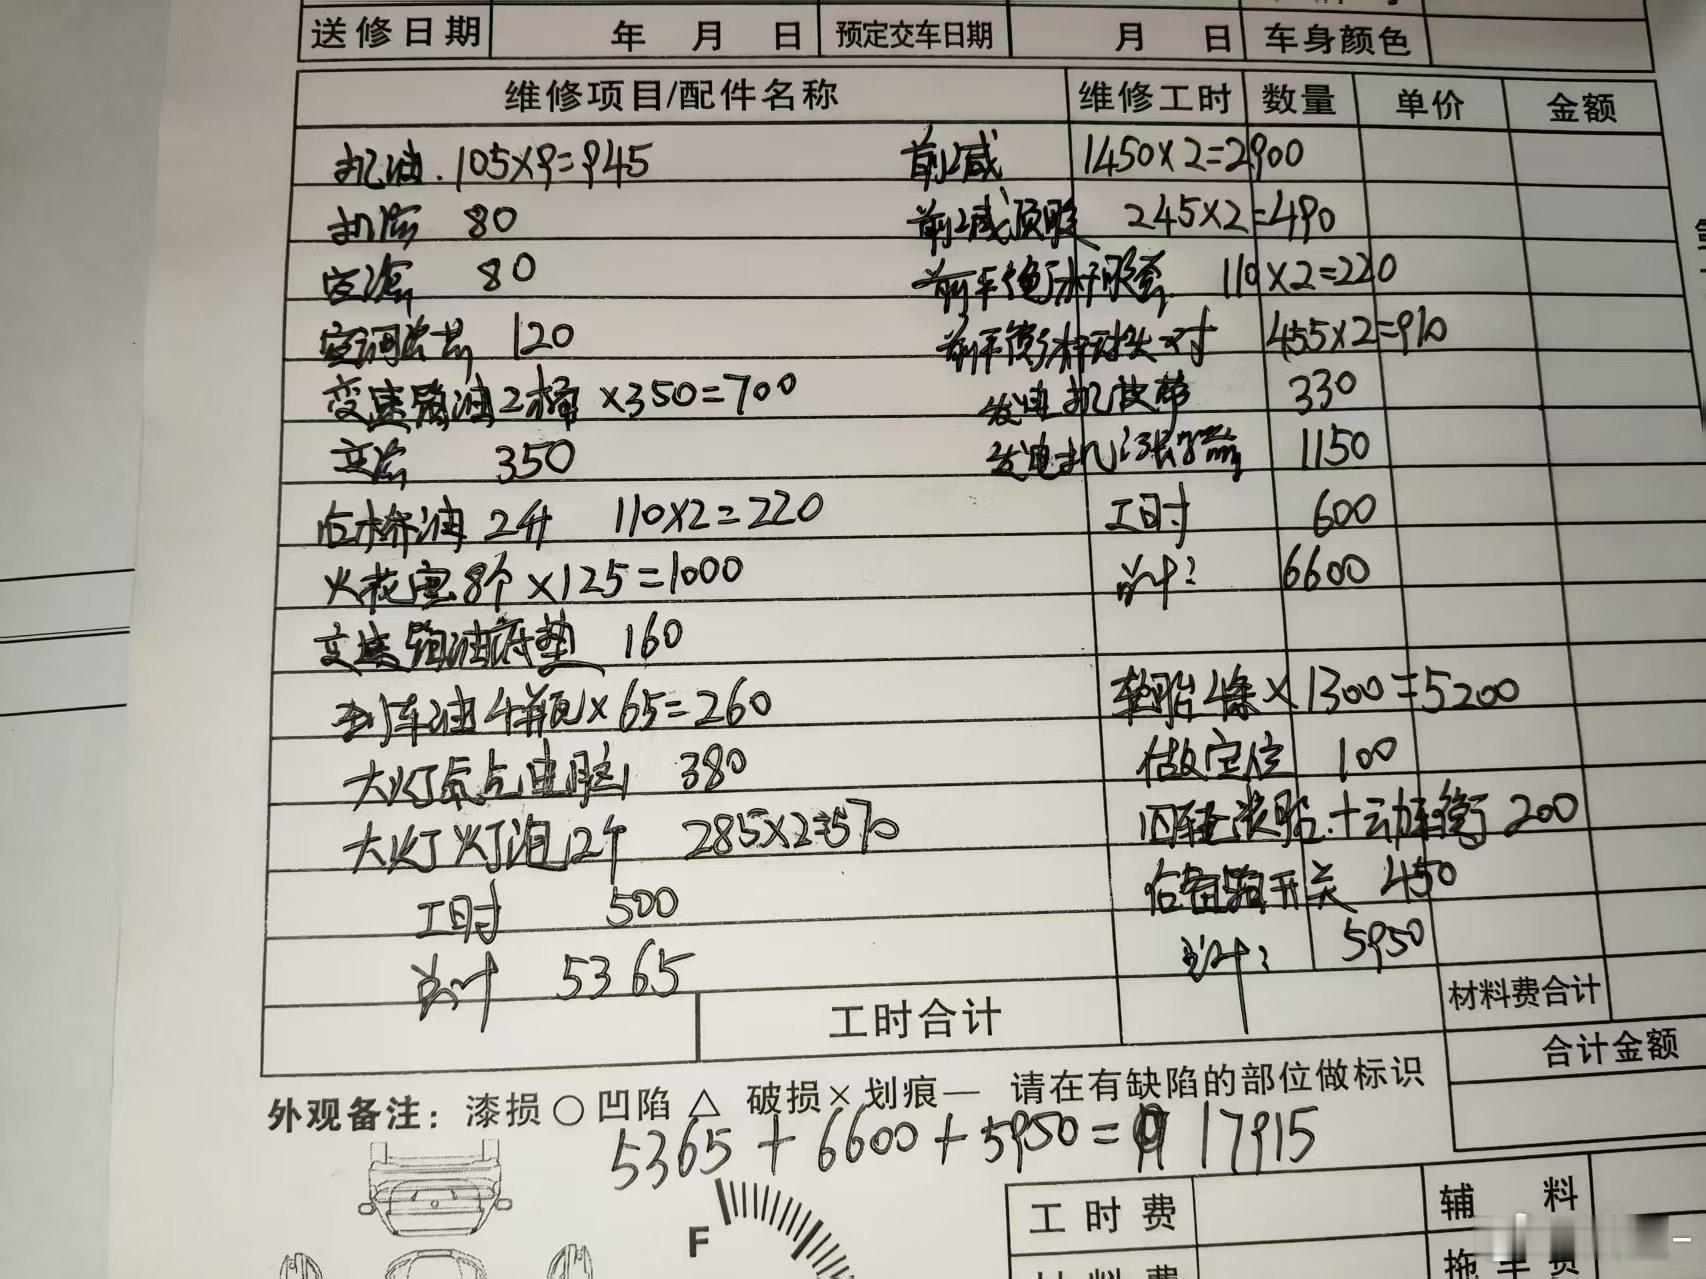 送修日期 年 月 日 预定交车日期 月 日 车身颜色
维修项目/配件名称 维修工时 数量 单价 金额
机油.105×9=945 前减 1450×2=2900
机滤 80 前减顶胶 245×2=490
空滤 80 前平衡杆胶套 110×2=220
空调滤芯 120 前平衡杆球头一对 455×2=910
变速箱油2桶 ×350=700 发电机皮带 330
变滤 350 发电机涨紧器 1150
后桥油 2升 110×2=220 工时 600
火花塞8个×125=1000 总计: 6600
变速箱油底垫 160
刹车油4瓶×65=260 轮胎4条×1300=5200
大灯氙气电脑 380 做定位 100
大灯灯泡2个 285×2=570 四轮 动平衡 200
工时 500 开关 450
总计 5365 总计: 5950
工时合计 材料费合计
合计金额
外观备注: 漆损○ 凹陷△ 破损× 划痕— 请在有缺陷的部位做标识
5365+6600+5950= 17915
F
工时费 辅 料
材料费 拖车费